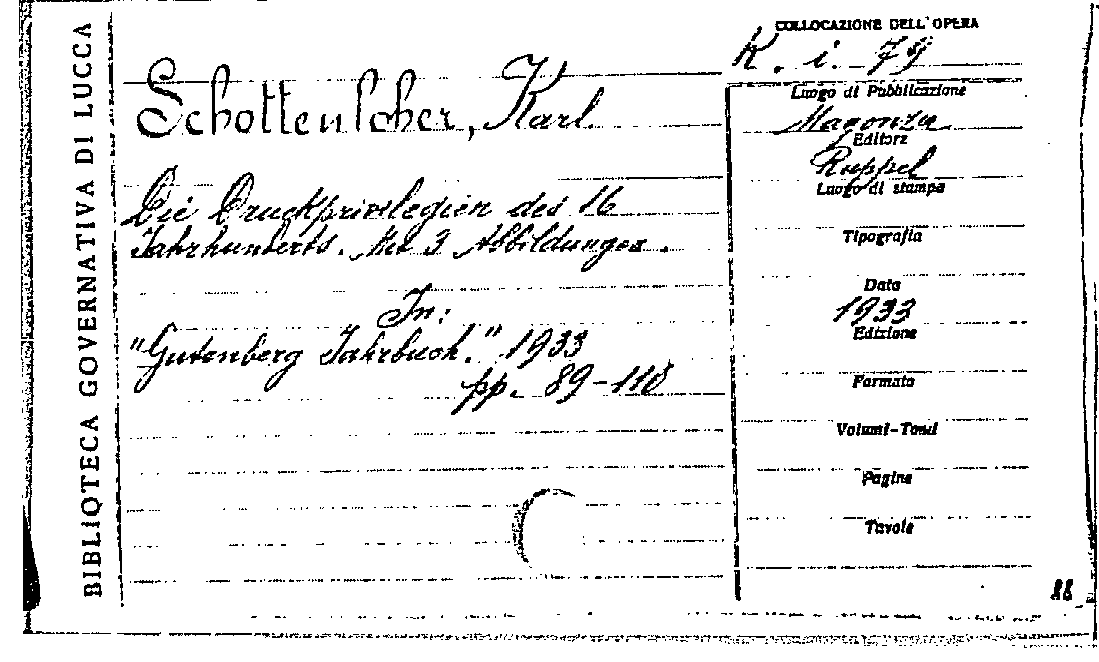 BIBLIOTECA GOVERNATIVA DI LUCCA
COLLOCAZIONE DELL'OPERA
K. i. 79
Schottenlcher, Karl
Die Druckprivilegien des 16
Jahrhunderts. Mit 3 Abbildungen.
In:
"Gutenberg Jahrbuch." 1933
pp. 89-110
Luogo di Pubblicazione
Magonza
Editore
Ruppel
Luogo di stampa
Tipografia
Data
1933
Edizione
Formato
Volumi-Tomi
Pagine
Tavole